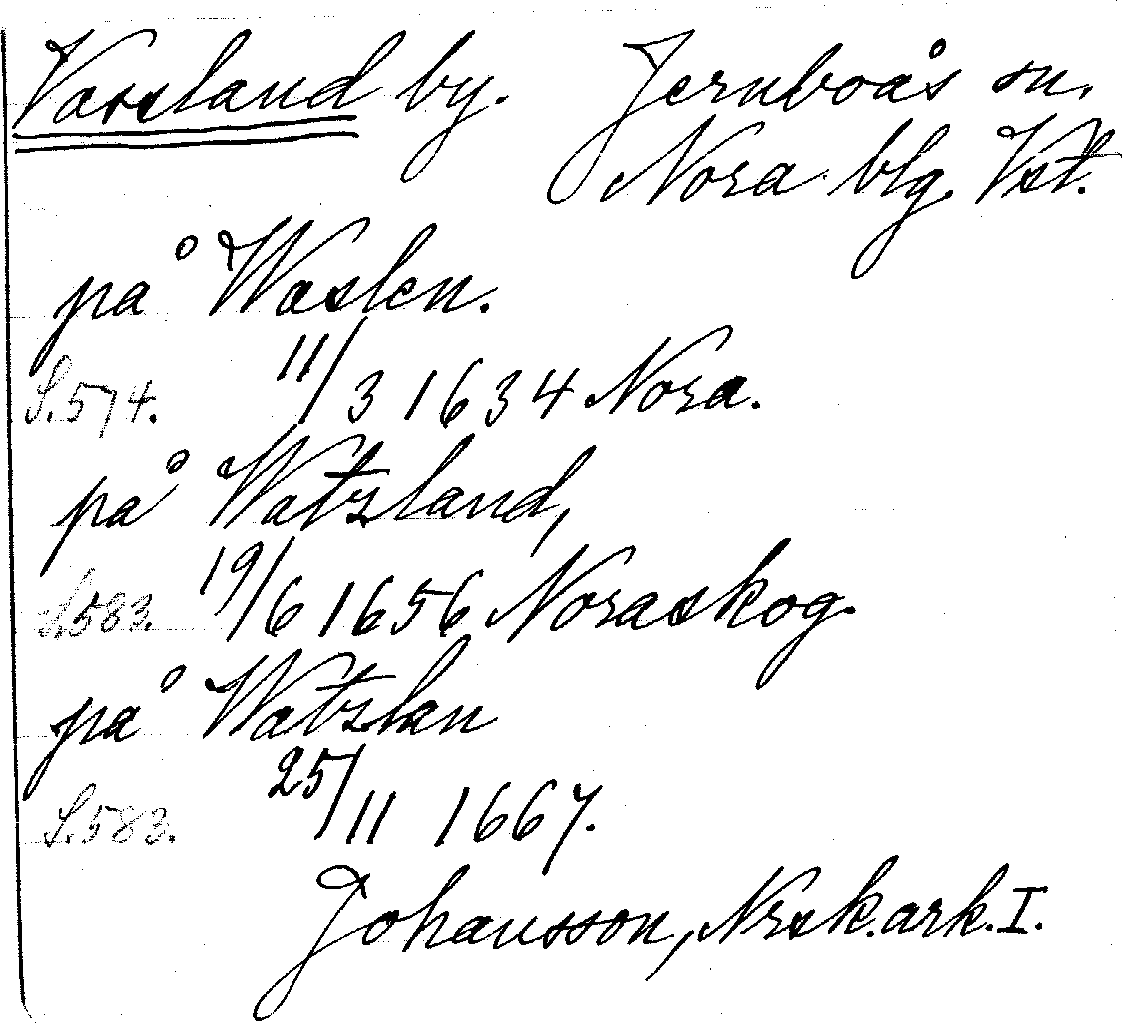 Vassland by. Jernboås sn.
Nora blg. Vstl.
på Waslen.
S. 574. 11/3 1634 Nora.
på Watzland,
S. 583. 19/6 1656 Noraskog.
på Watzlan
S. 583. 25/11 1667.
Johansson, Nrsk. ark. I.